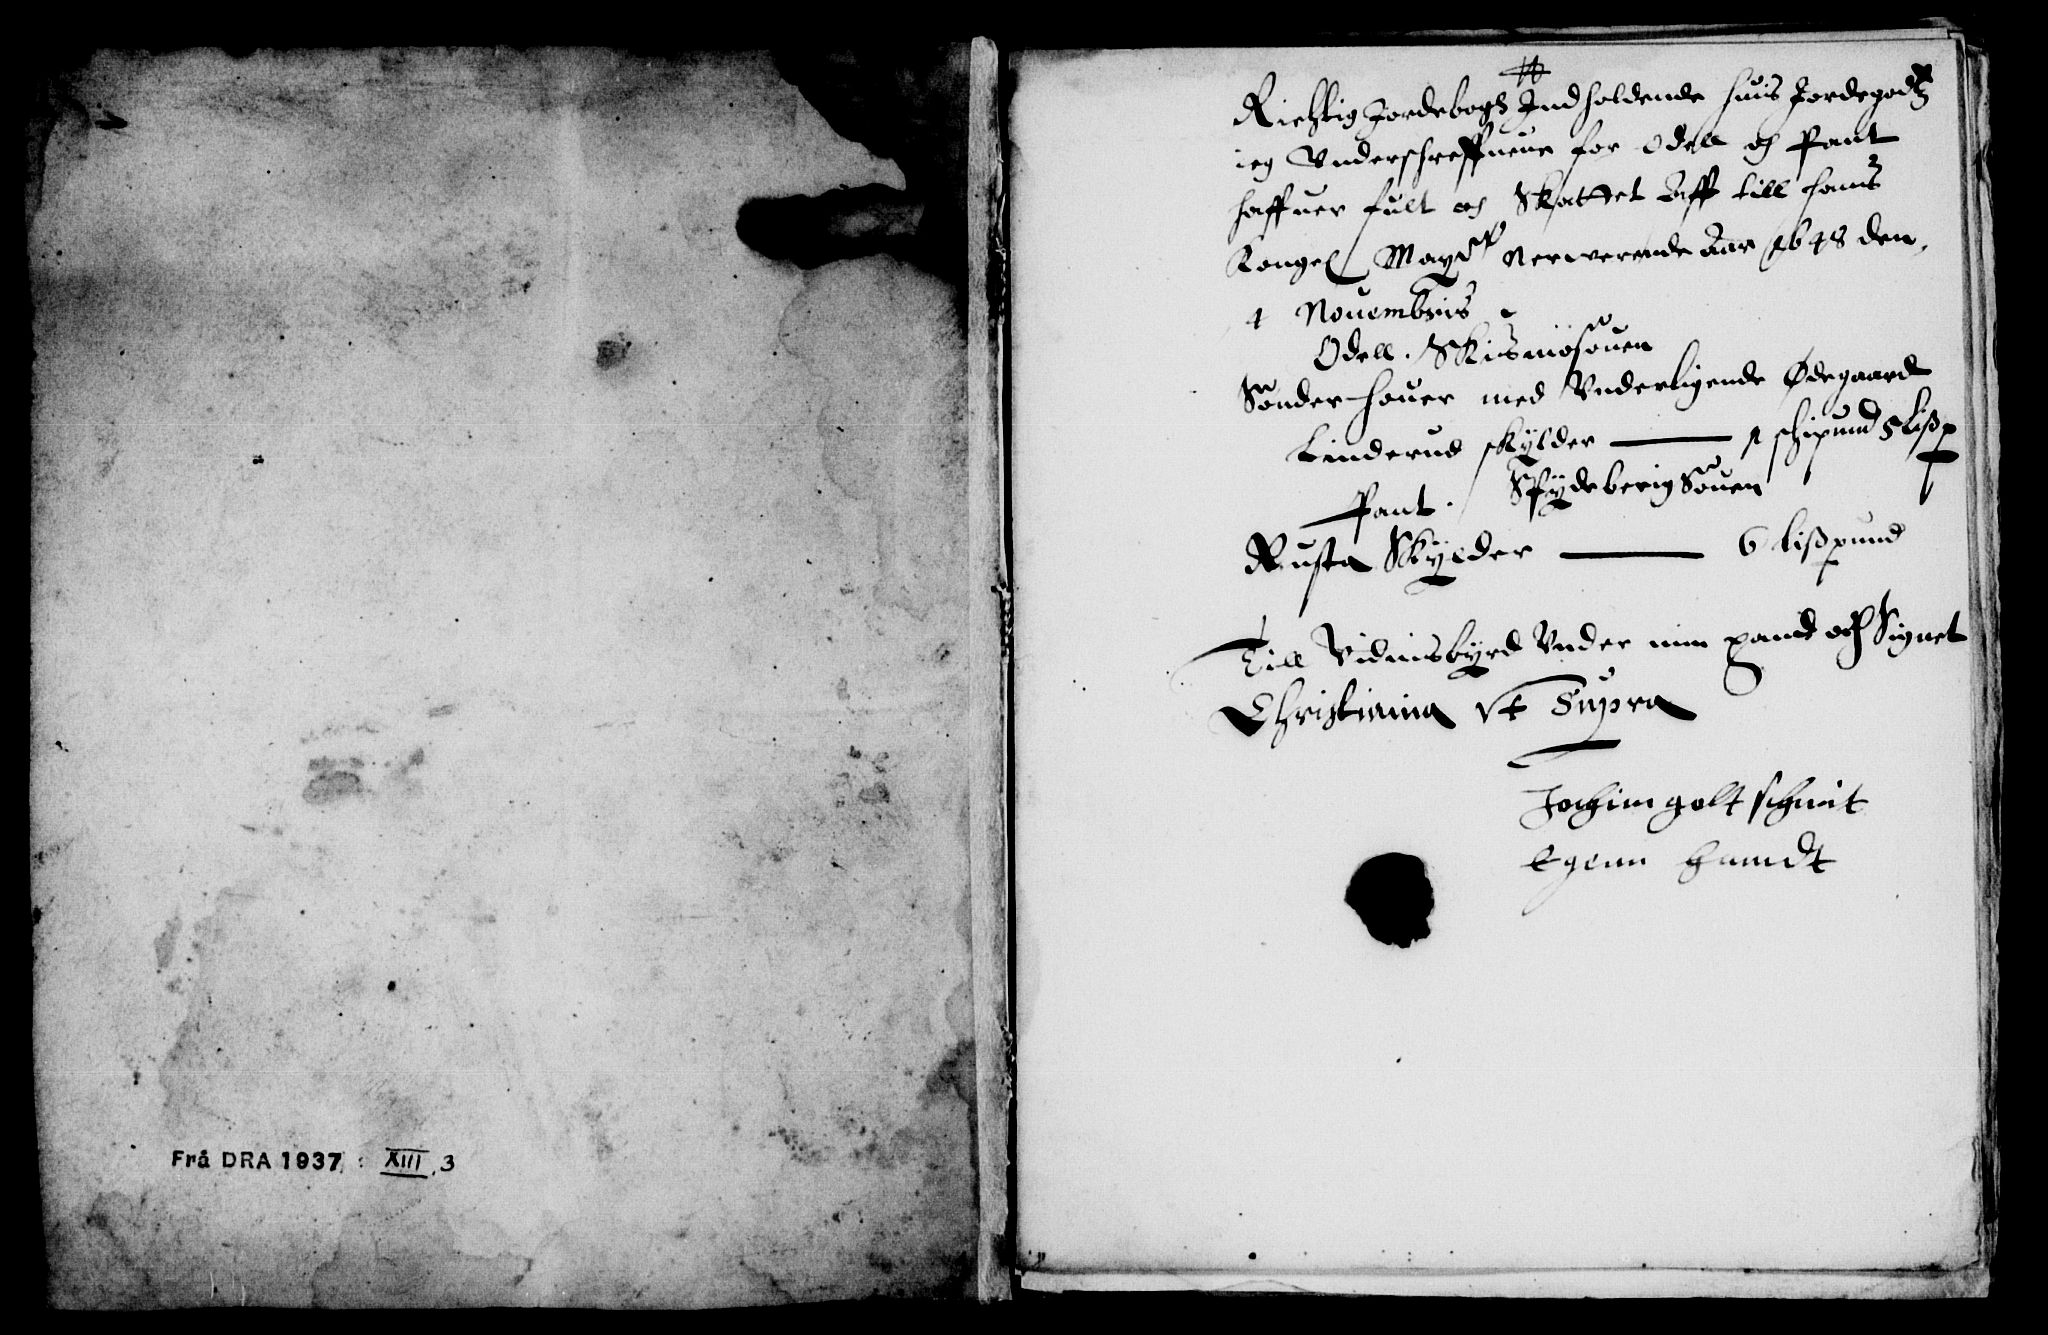 Frå DRA 1937 : XIII, 3
Richtig Jordebogh Indholdende huis Jordegodz
ieg Vnderschreffneue for Odell og Pant
haffuer fult og Skattet aff till hans
Kongel Mayst Nerwerende Aar 1648 den
4 Nouembris
Odell. Skis
Sønder houer med Vnderligende Ødegaard
Linderud skylder 1 schipund 5 lißp
Pant. Spydeberig Souen
Rusta Skylder 6 lißpund
Till Vidnisbyrd Vnder min hand och Signet
Christiania Vt Supra
Jochim goltschmit
Egenn handt